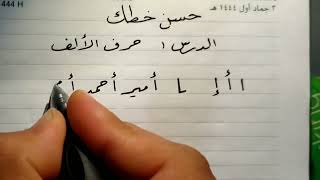 ٢ جماد أول ١٤٤٤ هـ
444 H
حسن خطك
الدرس ١ حرف الألف
ا أ إ ـا أمير أحمد